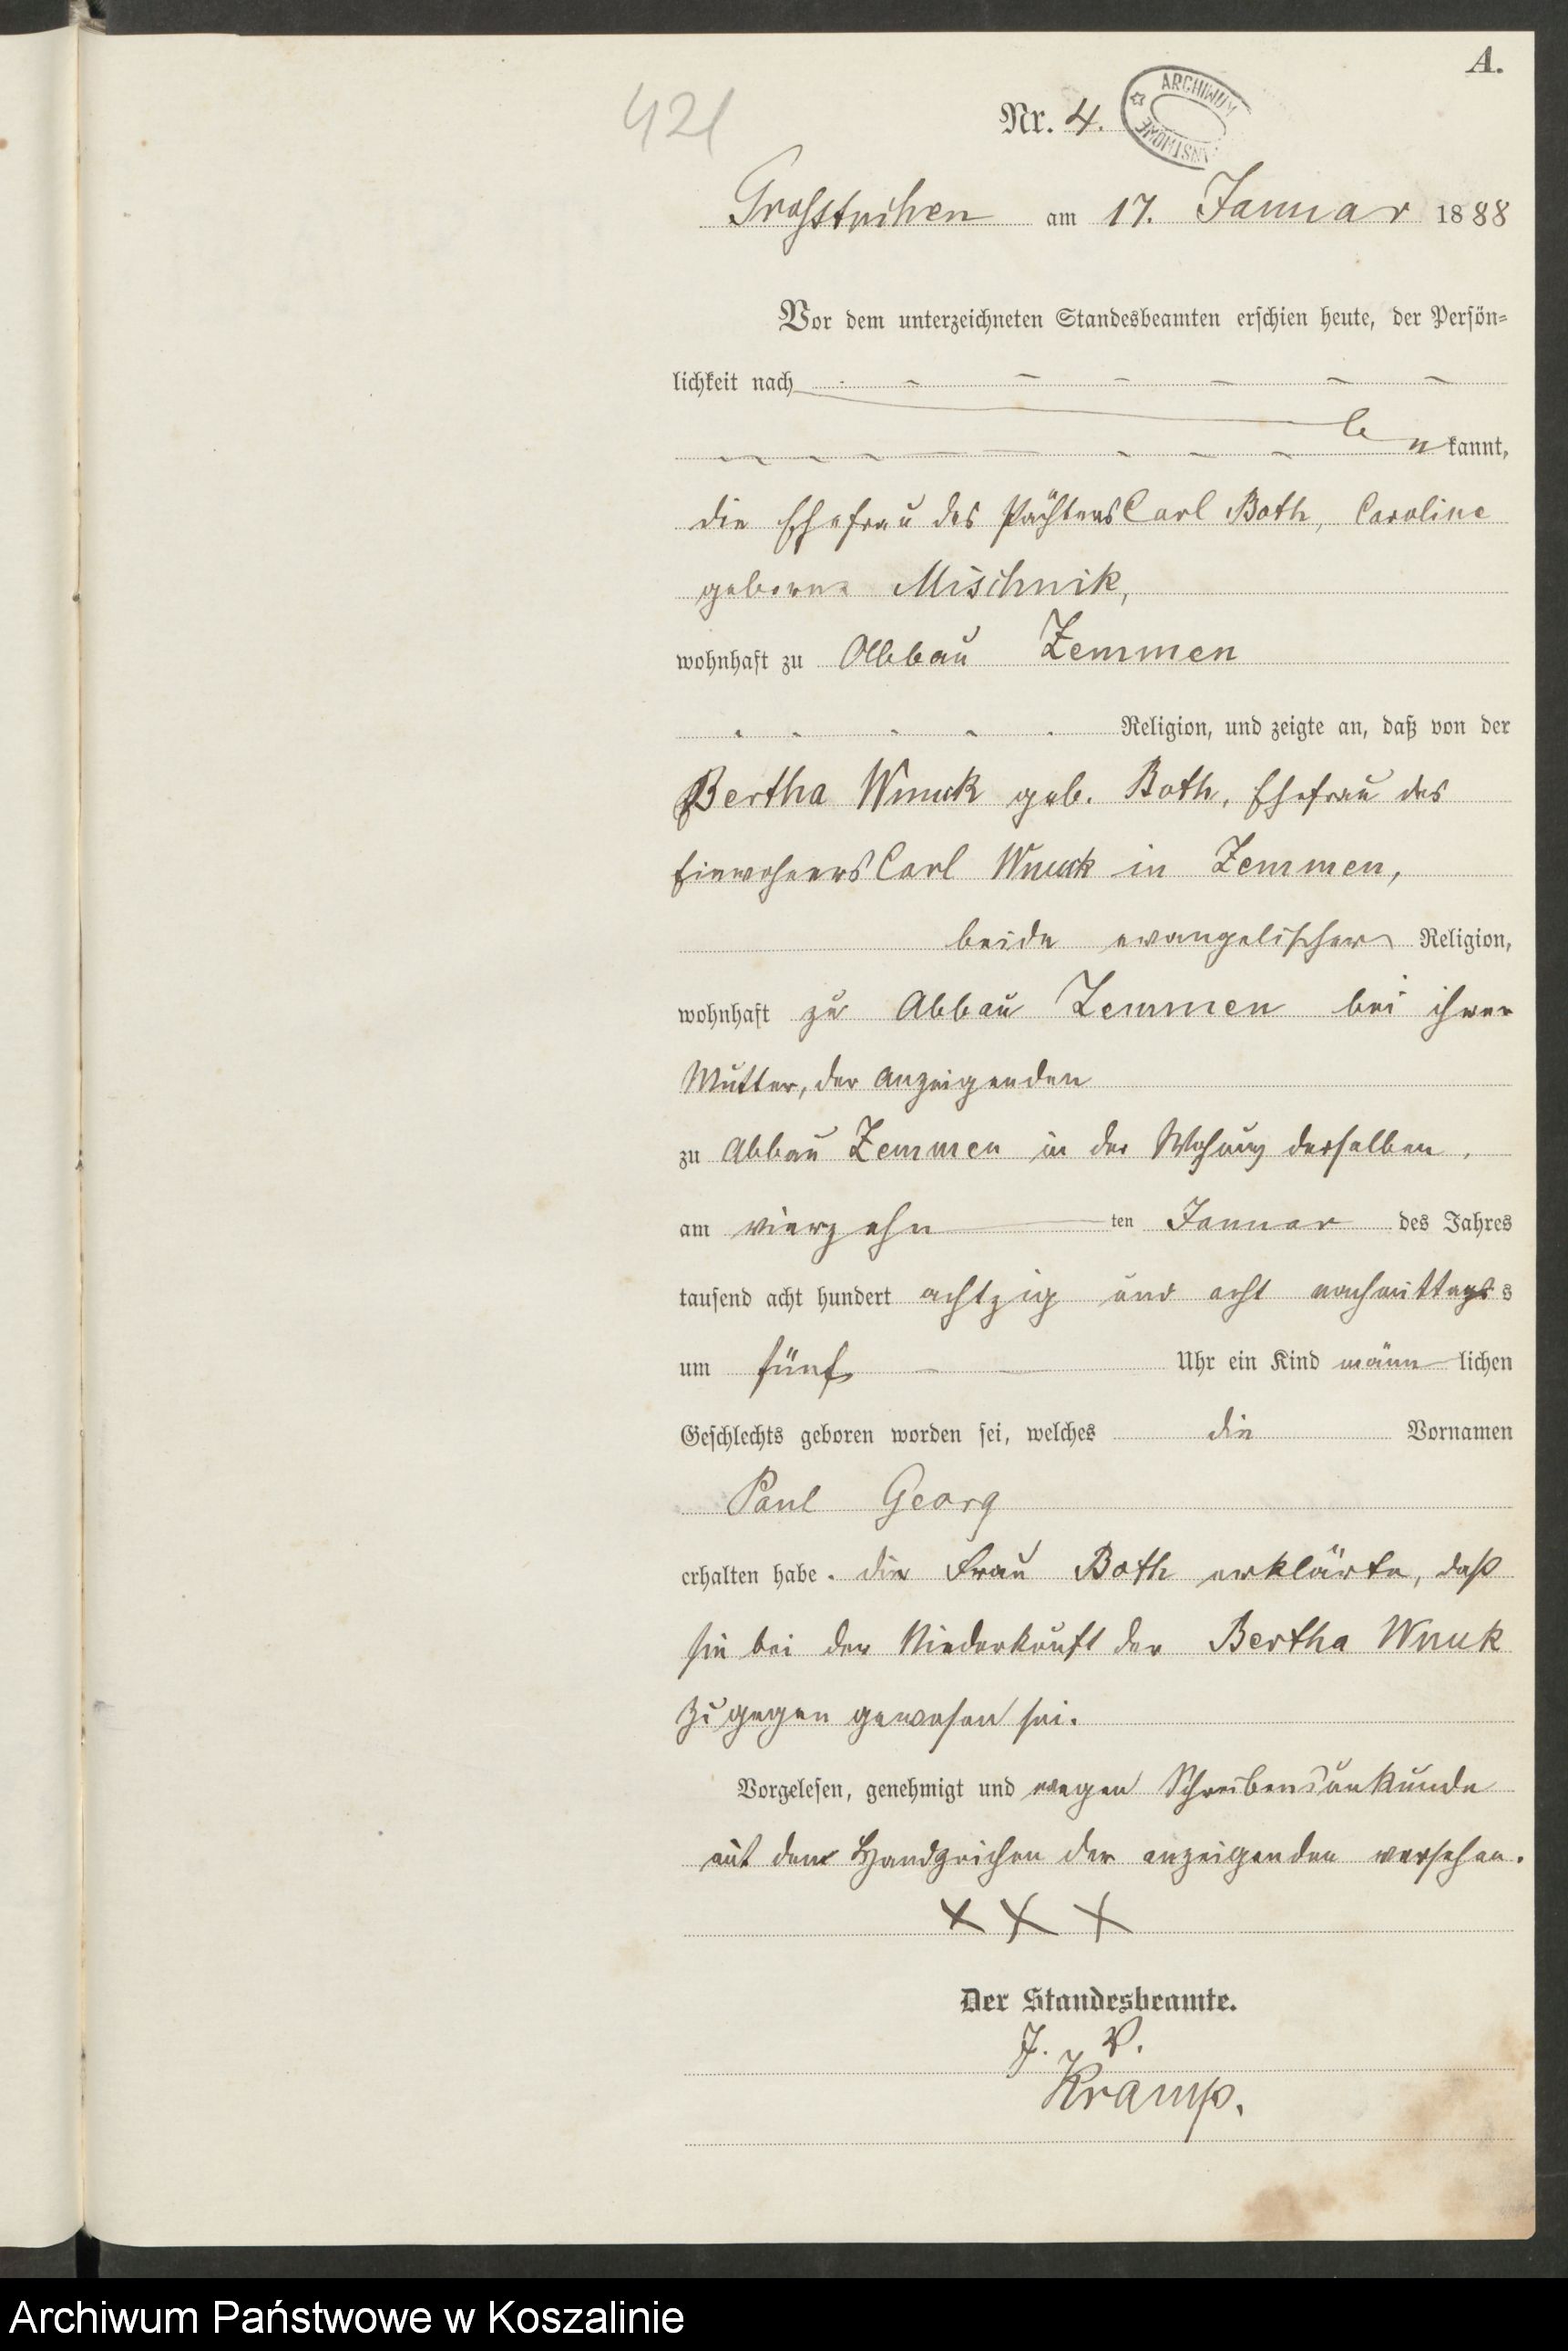 A.
421
Nr. 4.
ARCHIWUM
Grosstuchen am 17. Januar 1888
Vor dem unterzeichneten Standesbeamten erschien heute, der Persön-
lichkeit nach
be kannt,
die Ehefrau des Pächters Carl Both, Caroline
geborne Mischnik,
wohnhaft zu Abbau Zemmen
Religion, und zeigte an, daß von der
Bertha Wnuck geb. Both, Ehefrau des
Einwohners Carl Wnuck in Zemmen,
beide evangelischer Religion,
wohnhaft zu Abbau Zemmen bei ihrer
Mutter, der Anzeigenden
zu Abbau Zemmen in der Wohnung derselben,
am vierzehn ten Januar des Jahres
tausend acht hundert achtzig und acht nachmittags s
um fünf Uhr ein Kind männ lichen
Geschlechts geboren worden sei, welches die Vornamen
Paul Georg
erhalten habe. die Frau Both erklärte, daß
sie bei der Niederkunft der Bertha Wnuk
zugegen gewesen sei.
Vorgelesen, genehmigt und wegen Schreibensunkunde
mit dem Handzeichen der anzeigenden versehen.
X X X
Der Standesbeamte.
J. V.
Kramp.
Archiwum Państwowe w Koszalinie